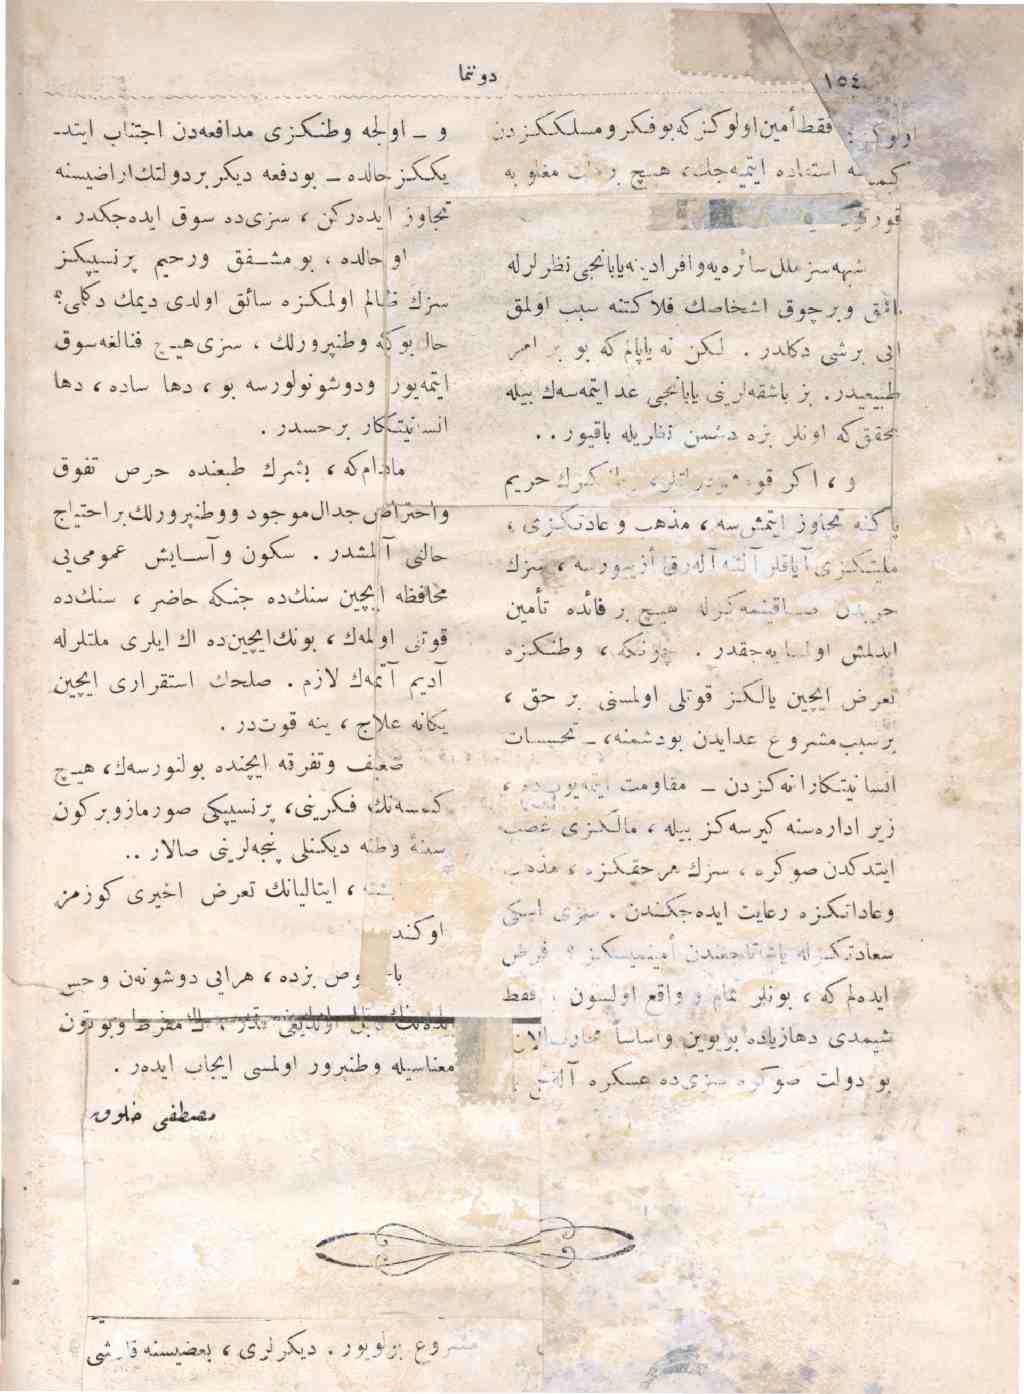 ١٥٤
دوننما
اولوكز؛ فقط أمين اولوكز كه بو فكر و مسلككزدن
استفاده ايتميه‌جك، هيچ مغلوبه
شبهه‌سز ملل سائره‌يه و افرادينه يابانجى نظرلرله
باقمق وبرچوق اشخاصك فلاكتنه سبب اولمق
ايى برشى دكلدر. لكن نه ياپالم كه بو بر امر
طبيعيدر. بز باشقه‌لرينى يابانجى عد ايتمه‌سه‌ك بيله
محقق كه اونلر بزه دشمن نظريله باقيور..
و، اكر حريم
پاكنه تجاوز ايتمش‌سه، مذهب و عادتكزى،
مليتكزى آياقلر آلتنه آله‌رق أزييورسه، سزك
حربدن صاقينمه‌كزله هيچ بر فائده تأمين
ايدلمش اولمايه‌جقدر. چونكه، وطنكزه
تعرض ايچين يالكز قوتلى اولمسنى بر حق،
برسبب مشروع عدايدن بودشمنه، ـ تحسسات
انسانيتكارانه‌كزدن ـ مقاومت ايتمه‌يوب‌ده،
زير اداره‌سنه كيرسه‌كز بيله، مالكزى غصب
ايتدكدن صوكره، سزك هرحقكزه، مذهب
وعاداتكزه رعايت ايده‌جكندن، سزى اسكى
سعادتكزله ياشاتاجغندن أمينميسكز؟ فرض
ايده‌لم كه، بونلر تمام و واقع اولسون، فقط
شيمدى دهازياده بويوين واساساً محارب اولان
بو دولت صوكره سزى‌ده عسكره آله‌جق
و ـ اولجه وطنكزى مدافعه‌دن اجتناب ايتد-
يككز حالده ـ بودفعه ديكر بردولتك اراضيسنه
تجاوز ايده‌ركن، سزى‌ده سوق ايده‌جكدر.
او حالده، بو مشفق ورحيم پرنسيپكز
سزك ظالم اولمكزه سائق اولدى ديمك دكلمى؟
حال بوكه وطنپرورلك، سزى هيچ فنالغه‌سوق
ايتمه‌يور ودوشونولورسه بو، دها ساده، دها
انسانيتكار برحسدر.
مادام‌كه، بشرك طبعنده حرص تفوق
واحتراص جدال موجود ووطنپرورلك براحتياج
حالنى آلمشدر. سكون و آسايش عمومى‌يى
محافظه ايچين سنك‌ده جنكه حاضر، سنك‌ده
قوتلى اولمه‌ك، بونك ايچين‌ده اك ايلرى ملتلرله
آديم آتمه‌ك لازم. صلحك استقرارى ايچين
يكانه علاج، ينه قوت‌در.
ضعيف وتفرقه ايچنده بولنورسه‌ك، هيچ
كمسه‌نك فكرينى، پرنسيپكى صورمازوبركون
سينۀ وطنه ديكنلى پنجه‌لرينى صالار..
ايشته، ايتاليانك تعرض اخيرى كوزمز
اوكنده
باخصوص بزده، هرايى دوشونه‌ن وحس
ايده‌نك قابل اولديغى قدر، اك مفرط وبوتون
معناسيله وطنپرور اولمسى ايجاب ايده‌ر.
مصطفى خلوق
مشروع بولويور. ديكرلرى، بعضيسنه قارشى